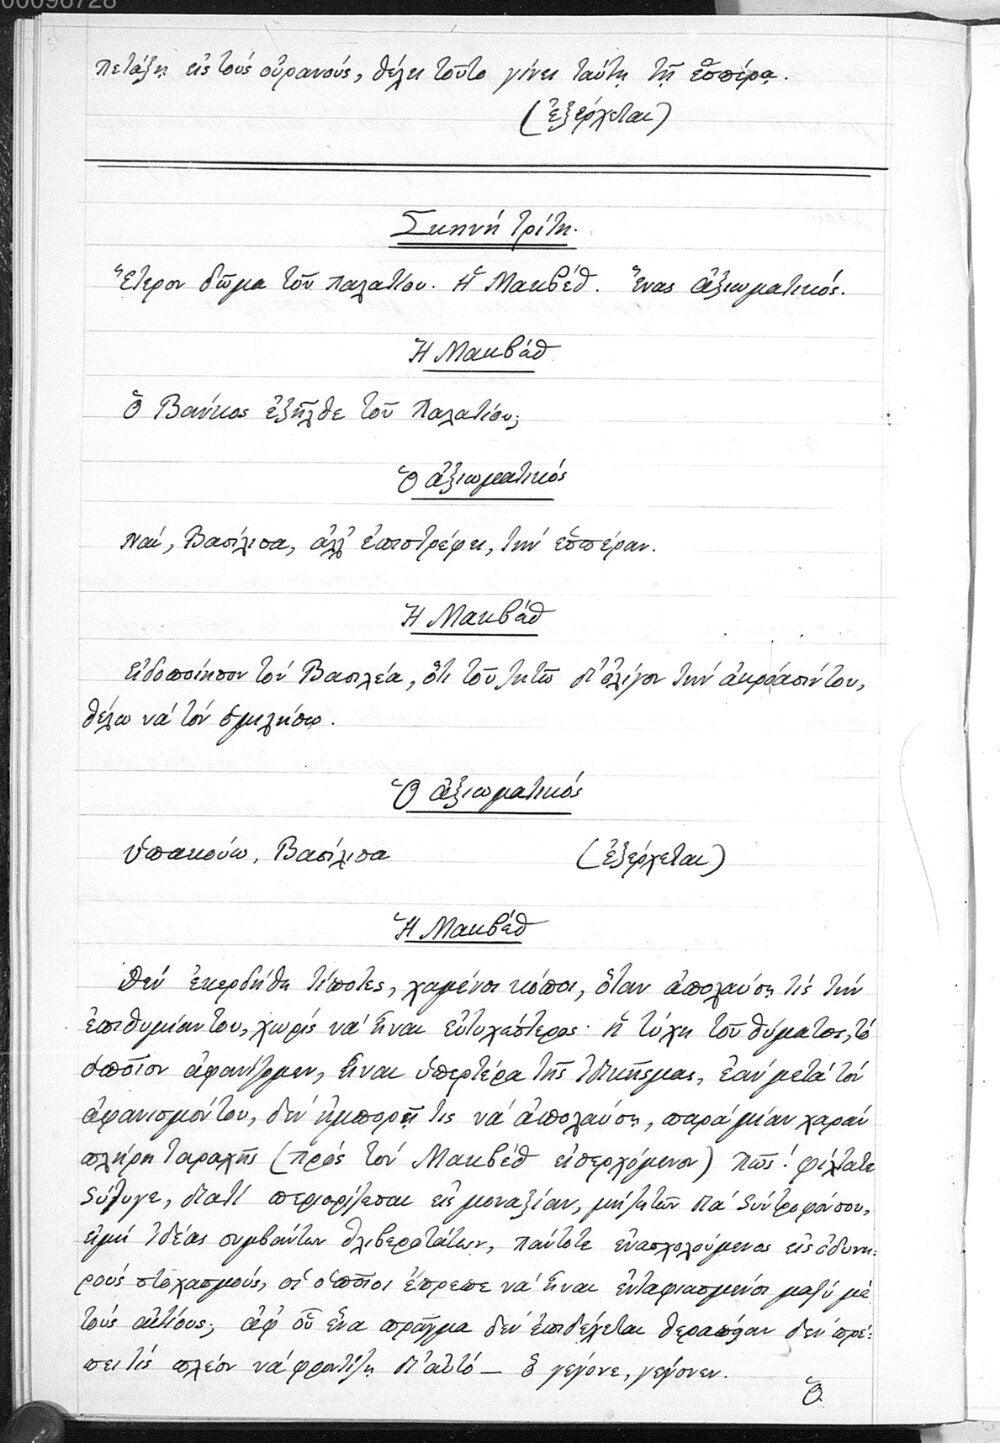 00096728
πετάξῃ εἰς τοὺς οὐρανούς, θέλει τοῦτο γίνει ταύτῃ τῇ ἑσπέρᾳ.
(ἐξέρχεται)
Σκηνή τρίτη.
Ἕτερον δῶμα τοῦ παλατίου. Ἡ Μακβέθ. Ἕνας ἀξιωματικός.
Ἡ Μακβέθ
Ὁ Βάνκος ἐξῆλθε τοῦ Παλατίου;
Ὁ ἀξιωματικός
Ναί, Βασίλισα, ἀλλ' ἐπιστρέφει, τὴν ἑσπέραν.
Ἡ Μακβέθ
Εἰδοποίησον τὸν Βασιλέα, ὅτι τοῦ ζητῶ δι' ὀλίγον τὴν ἀκρόασίν του,
θέλω νὰ τὸν ὁμιλήσω.
Ὁ ἀξιωματικός
Ὑπακούω, Βασίλισα (ἐξέρχεται)
Ἡ Μακβέθ
Δὲν ἐκερδήθη τίποτες, χαμένοι κόποι, ὅταν ἀπολαύσῃ τὶς τὴν
ἐπιθυμίαν του, χωρὶς νὰ ᾖναι εὐτυχέστερος· ἡ τύχη τοῦ θύματος, τὸ
ὁποῖον ἀφανίζομεν, εἶναι ὑπερτέρα τῆς ἰδικῆς μας, ἐὰν μετὰ τὸν
ἀφανισμόν του, δὲν ἠμπορῇ τὶς νὰ ἀπολαύσῃ, παρὰ μίαν χαρὰν
πλήρη ταραχῆς (πρὸς τὸν Μακβέθ εἰσερχόμενον) Πῶς! φίλτατε
σύζυγε, διατί περιορίζεσαι εἰς μοναξίαν, μὴ ζητῶν διὰ συντροφιάν σου,
εἰμὴ ἰδέας συμβάντων θλιβερωτάτων, πάντοτε ἐνασχολούμενος εἰς ὀδυνη-
ροὺς στοχασμούς, οἱ ὁποῖοι ἔπρεπε νὰ ᾖναι ἐνταφιασμένοι μαζὺ μὲ
τοὺς αἰτίους; ἀφ' οὗ ἕνα πρᾶγμα δὲν ἐπιδέχεται θεραπείαν δὲν πρέ-
πει τὶς πλέον νὰ φροντίζῃ δι' αὐτό — ὃ γέγονε, γέγονεν.
Ὁ